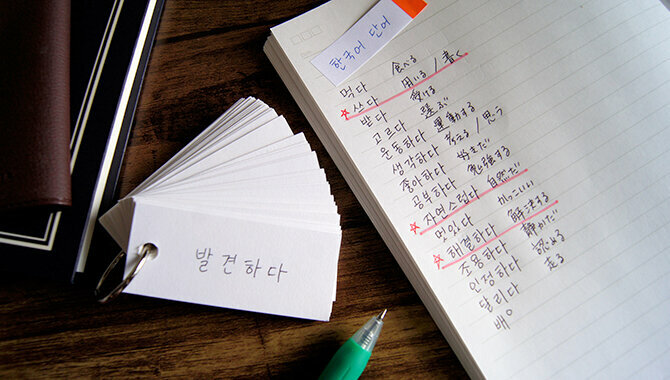 한국어 단어
먹다 食べる
☆쓰다 用いる/書く
받다 受ける
고르다 選ぶ
운동하다 運動する
생각하다 考える/思う
좋아하다 好きだ
공부하다 勉強する
☆자연스럽다 自然だ
멋있다 かっこいい
☆해결하다 解決する
조용하다 静かだ
인정하다 認める
달리다 走る
배
발견하다